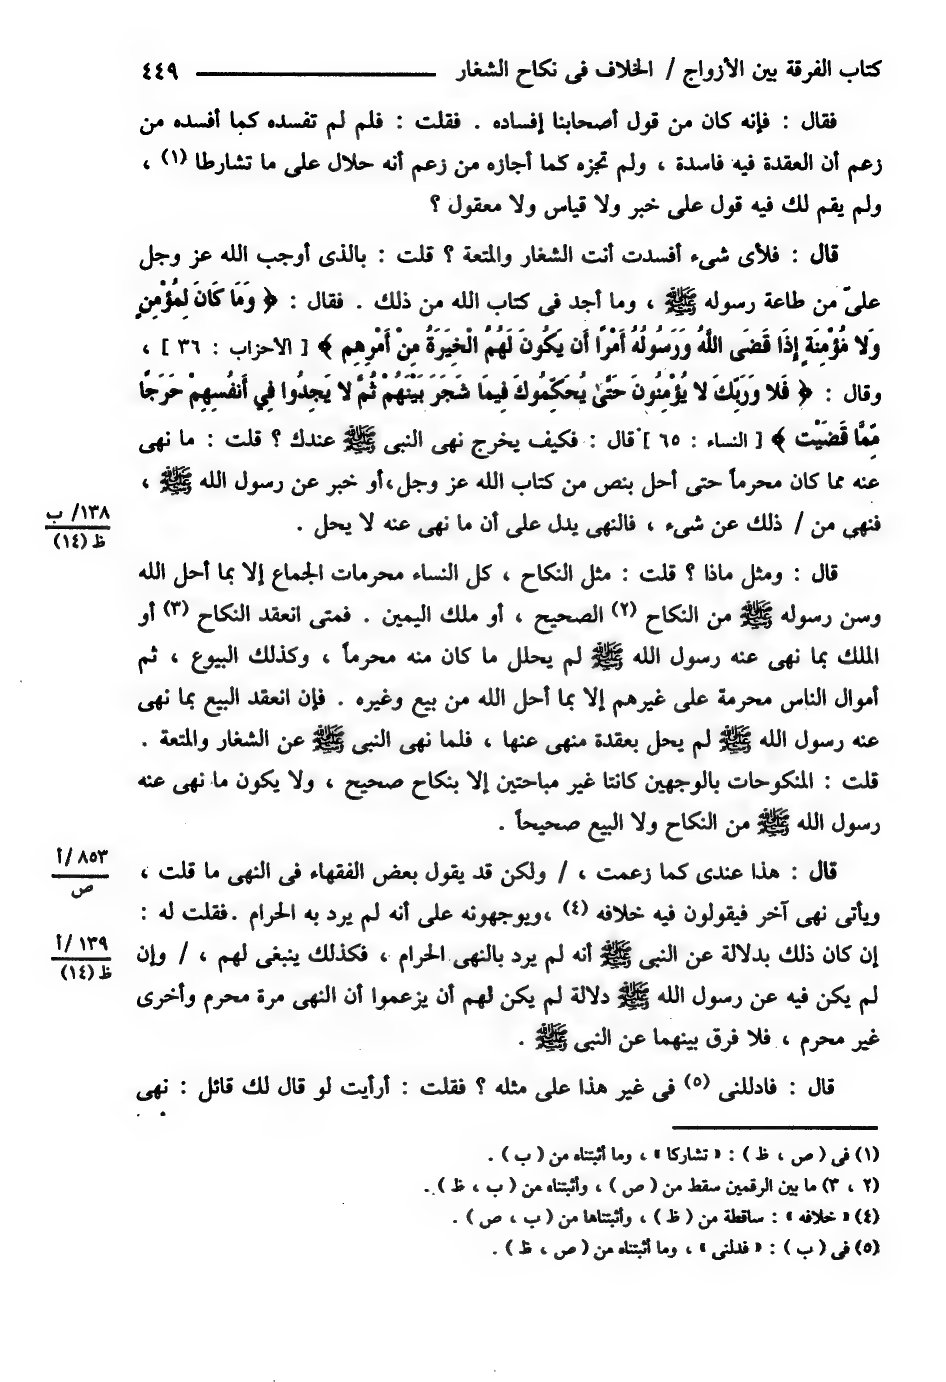 كتاب الفرقة بين الأزواج / الخلاف فى نكاح الشغار ــــــــ ٤٤٩
فقال : فإنه كان من قول أصحابنا إفساده . فقلت : فلم لم تفسده كما أفسده من
زعم أن العقدة فيه فاسدة ، ولم تجزه كما أجازه من زعم أنه حلال على ما تشارطا (١) ،
ولم يقم لك فيه قول على خبر ولا قياس ولا معقول ؟
قال : فلأى شىء أفسدت أنت الشغار والمتعة ؟ قلت : بالذى أوجب الله عز وجل
علىّ من طاعة رسوله ﷺ ، وما أجد فى كتاب الله من ذلك . فقال : ﴿ وَمَا كَانَ لِمُؤْمِنٍ
وَلا مُؤْمِنَةٍ إِذَا قَضَى اللَّهُ وَرَسُولُهُ أَمْرًا أَن يَكُونَ لَهُمُ الْخِيَرَةُ مِنْ أَمْرِهِمْ ﴾ [ الأحزاب : ٣٦ ] ،
وقال : ﴿ فَلا وَرَبِّكَ لا يُؤْمِنُونَ حَتَّىٰ يُحَكِّمُوكَ فِيمَا شَجَرَ بَيْنَهُمْ ثُمَّ لا يَجِدُوا فِي أَنفُسِهِمْ حَرَجًا
مِّمَّا قَضَيْتَ ﴾ [ النساء : ٦٥ ] قال : فكيف يخرج نهى النبى ﷺ عندك ؟ قلت : ما نهى
عنه مما كان محرماً حتى أحل بنص من كتاب الله عز وجل،أو خبر عن رسول الله ﷺ ،
فنهى من / ذلك عن شىء ، فالنهى يدل على أن ما نهى عنه لا يحل .
١٣٨/ ب
ظ (١٤)
قال : ومثل ماذا ؟ قلت : مثل النكاح ، كل النساء محرمات الجماع إلا بما أحل الله
وسن رسوله ﷺ من النكاح (٢) الصحيح ، أو ملك اليمين . فمتى انعقد النكاح (٣) أو
الملك بما نهى عنه رسول الله ﷺ لم يحلل ما كان منه محرماً ، وكذلك البيوع ، ثم
أموال الناس محرمة على غيرهم إلا بما أحل الله من بيع وغيره . فإن انعقد البيع بما نهى
عنه رسول الله ﷺ لم يحل بعقدة منهى عنها ، فلما نهى النبى ﷺ عن الشغار والمتعة .
قلت : المنكوحات بالوجهين كانتا غير مباحتين إلا بنكاح صحيح ، ولا يكون ما نهى عنه
رسول الله ﷺ من النكاح ولا البيع صحيحاً .
قال : هذا عندى كما زعمت ، / ولكن قد يقول بعض الفقهاء فى النهى ما قلت ،
٨٥٣ /أ
ص
ويأتى نهى آخر فيقولون فيه خلافه (٤) ،ويوجهونه على أنه لم يرد به الحرام .فقلت له :
إن كان ذلك بدلالة عن النبى ﷺ أنه لم يرد بالنهى الحرام ، فكذلك ينبغى لهم ، / وإن
١٣٩ /أ
ظ (١٤)
لم يكن فيه عن رسول الله ﷺ دلالة لم يكن لهم أن يزعموا أن النهى مرة محرم وأخرى
غير محرم ، فلا فرق بينهما عن النبى ﷺ .
قال : فادللنى (٥) فى غير هذا على مثله ؟ فقلت : أرأيت لو قال لك قائل : نهى
(١) فى ( ص ، ظ ) : « تشاركا » ، وما أثبتناه من ( ب ) .
(٢ ، ٣) ما بين الرقمين سقط من ( ص ) ، وأثبتناه من ( ب ، ظ ) .
(٤) « خلافه » : ساقطة من ( ظ ) ، وأثبتناها من ( ب ، ص ) .
(٥) فى ( ب ) : « فدلنى » ، وما أثبتناه من ( ص ، ظ ) .